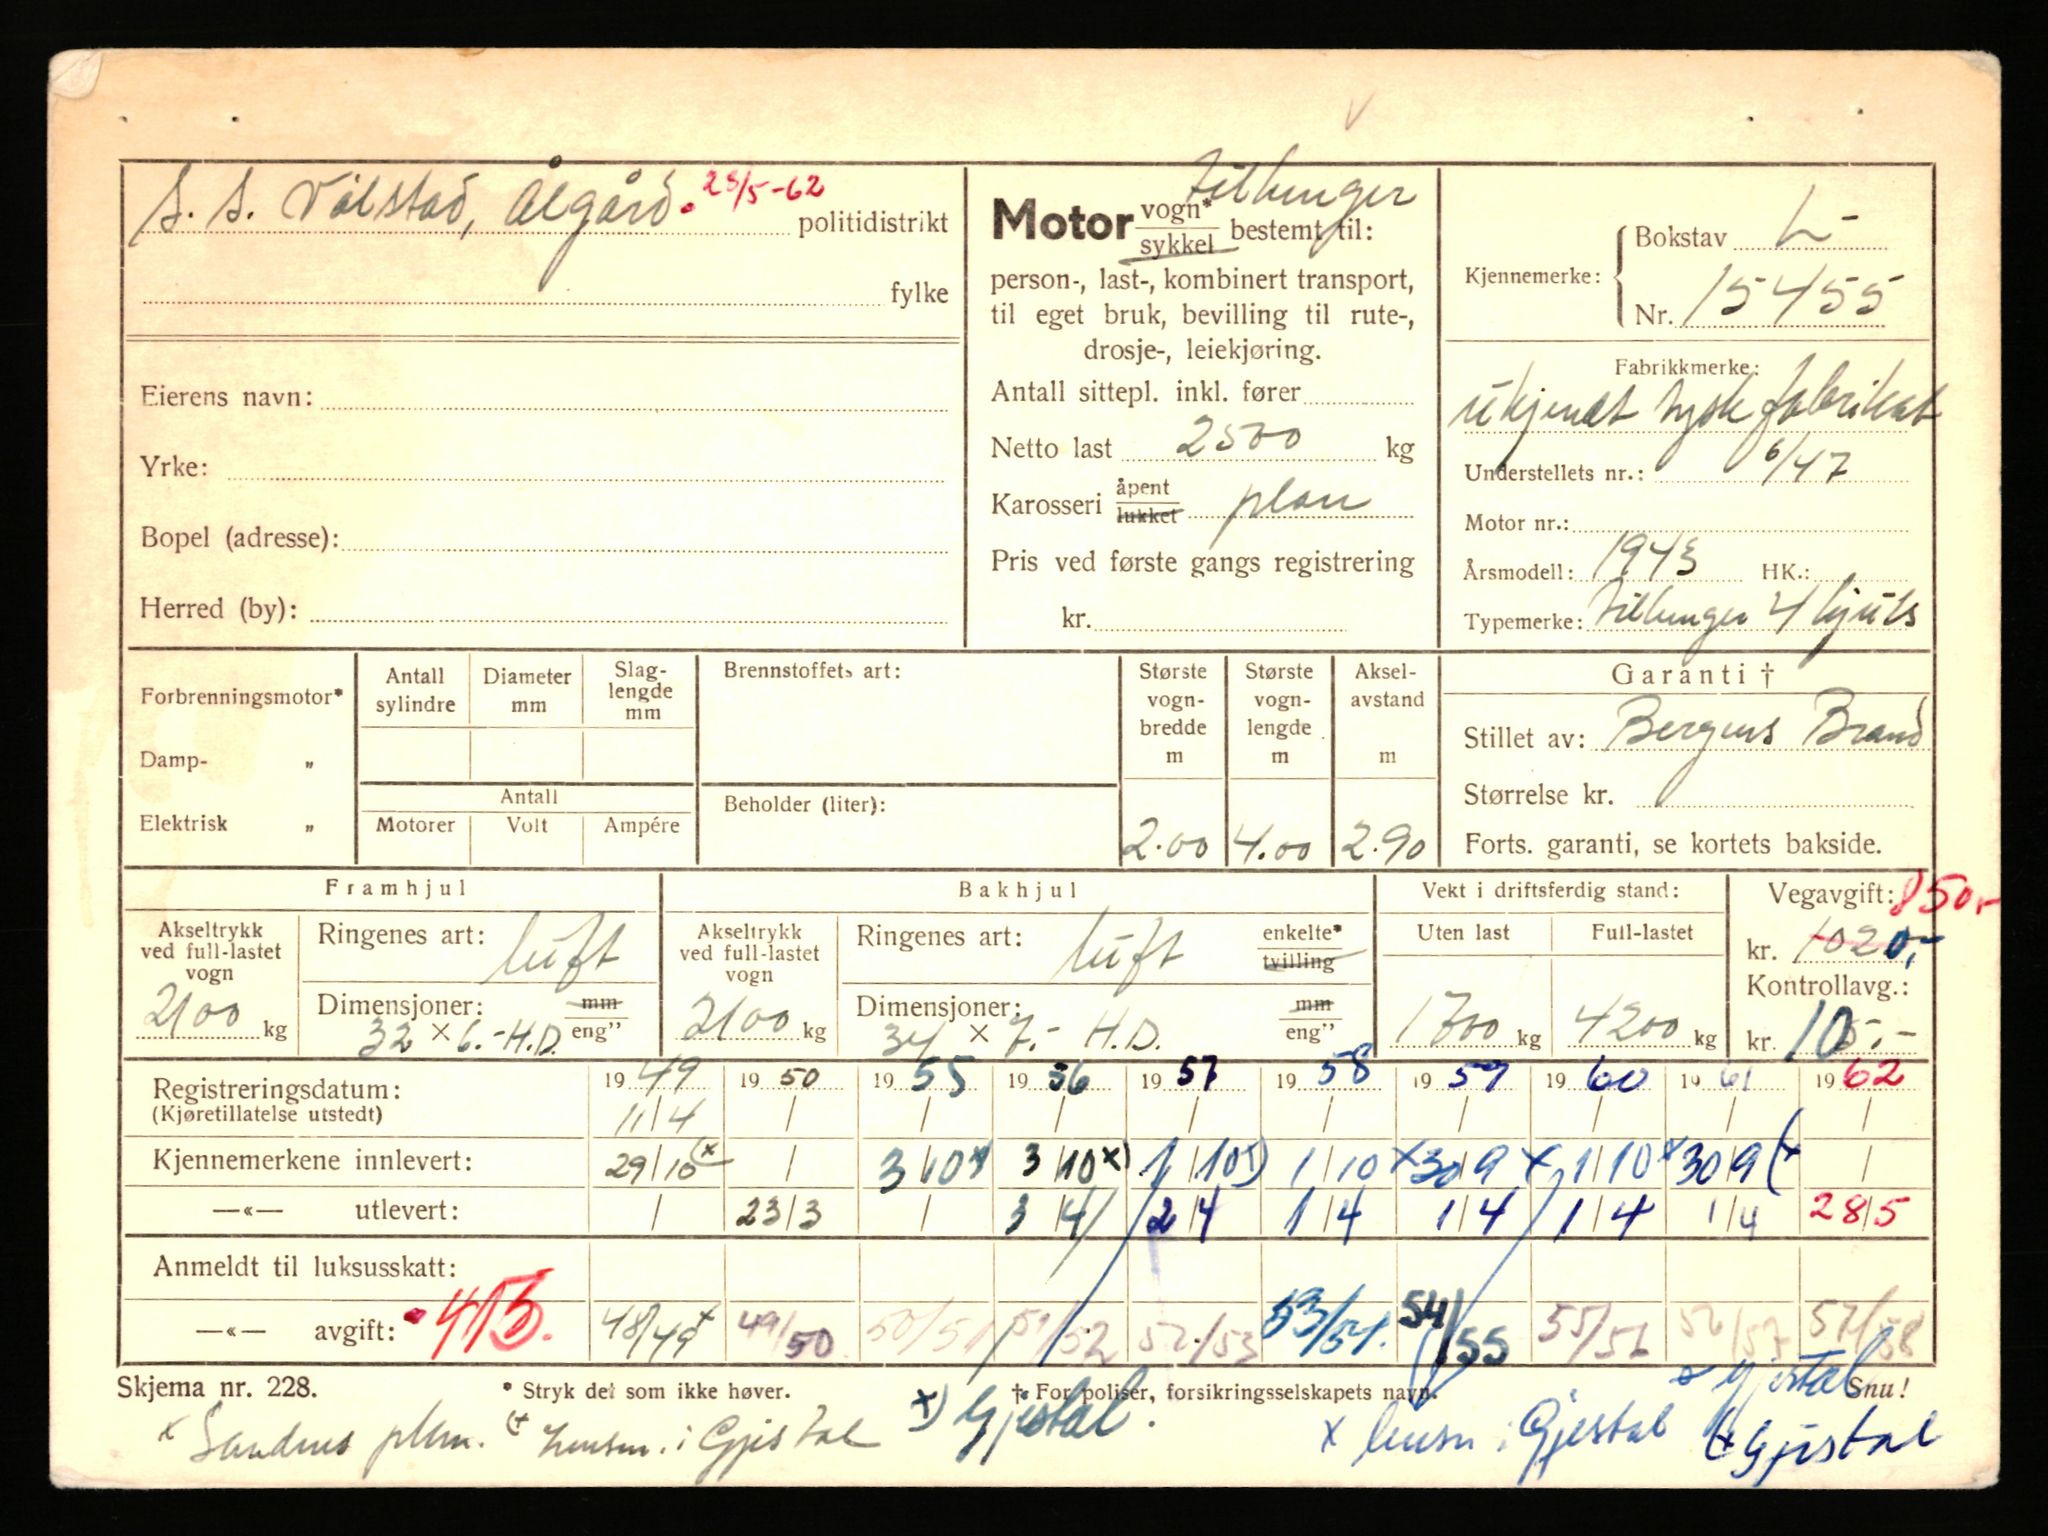 S. S. Vålstad, Ålgård. 28/5-62 politidistrikt
fylke
Eierens navn:
Yrke:
Bopel (adresse):
Herred (by):
tilhenger
Motor vogn* sykkel bestemt til:
person-, last-, kombinert transport,
til eget bruk, bevilling til rute-,
drosje-, leiekjøring.
Antall sittepl. inkl. fører
Netto last 2500 kg
Karosseri åpent lukket plan
Pris ved første gangs registrering
kr.
Kjennemerke: Bokstav L-
Nr. 15455
Fabrikkmerke:
Ukjendt tysk fabrikat
Understellets nr.: 6/47
Motor nr.:
Årsmodell: 1943 HK.:
Typemerke: tilhenger 4 hjuls
Forbrenningsmotor*
Damp- „
Elektrisk „
Antall sylindre
Diameter mm
Slaglengde mm
Antall
Motorer Volt Ampére
Brennstoffets art:
Beholder (liter):
Største vogn-bredde m 2.00
Største vogn-lengde m 4.00
Aksel-avstand m 2.90
Garanti †
Stillet av: Bergens Brand
Størrelse kr.
Forts. garanti, se kortets bakside.
Framhjul
Akseltrykk ved full-lastet vogn 2100 kg
Ringenes art: luft
Dimensjoner: mm eng”
32 × 6.- H.D.
Bakhjul
Akseltrykk ved full-lastet vogn 2100 kg
Ringenes art: luft enkelte* tvilling
Dimensjoner: mm eng”
34 × 7.- H.D.
Vekt i driftsferdig stand:
Uten last Full-lastet
1700 kg 4200 kg
Vegavgift: 850,-
kr. 1020,-
Kontrollavg.:
kr. 10.-
Registreringsdatum: 1949 1950 1955 1956 1957 1958 1959 1960 1961 1962
(Kjøretillatelse utstedt) 11/4 / / / / / / / / /
Kjennemerkene innlevert: 29/10 (x / 3/10 x) 3/10 x) 1/10 x) 1/10 x 30/9 x 1/10 x 30/9 (x /
—«— utlevert: / 23/3 / 3/4 2/4 1/4 1/4 1/4 1/4 28/5
Anmeldt til luksusskatt:
—«— avgift: 413. 48/49 x 49/50 50/51 51/52 52/53 53/54. 54/55 55/56 56/57 57/58
Skjema nr. 228. * Stryk det som ikke høver. † For poliser, forsikringsselskapets navn. Snu!
x Sandnes plkm. (x Lensm. i Gjestal x) Gjestal. x lensm i Gjestal x Gjestal (x Gjestal